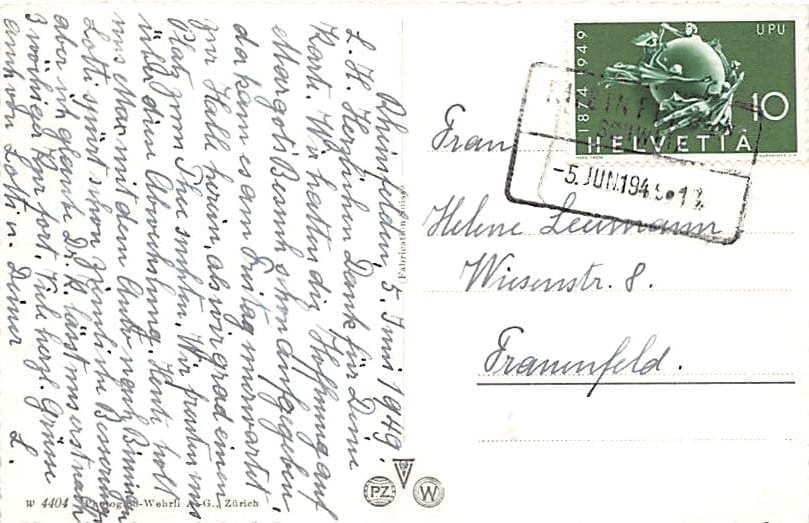 Rheinfelden, 5. Juni 1949.
L. H. Herzlichen Dank für Deine
Karte. Wir hatten die Hoffnung auf
Margots Besuch schon aufgegeben
da kam es am Freitag unerwartet
zur Halle herein, als wir grad einen
Platz zum Thee suchten. Wir freuten uns
über diese Abwechslung. Heute holt
uns Max mit dem Auto nach
Lotti spürt schon ziemliche Besserung
aber ich glaube Dr. K. lässt uns erst nach
3 wöchiger Kur fort. Viele herzl. Grüsse
auch von Lotti u. Deiner L.
W 4404 Photogr.-Wehrli A.-G., Zürich
(Fabrication Suisse)
PZ
W
1874 1949
UPU
10
HELVETIA
-5. JUN. 1949 · 12
Frau
Helene Leumann
Wiesenstr. 8.
Frauenfeld.